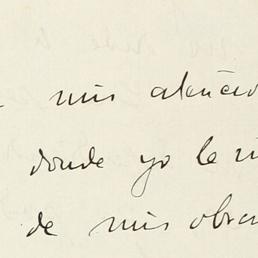 mis atencio
donde yo le vi
de mis obras